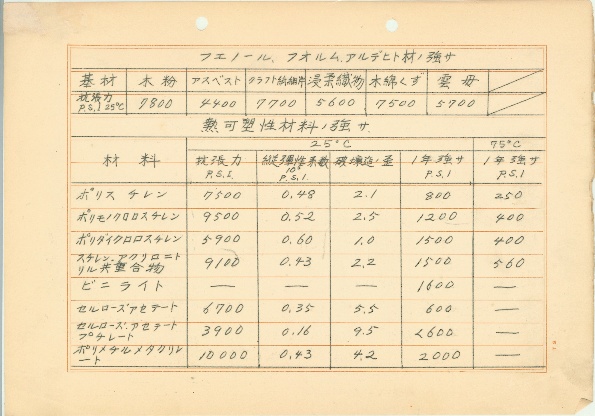 フエノール、フオルム、アルデヒド材ノ強サ
基材 木粉 アスベスト クラフト紙細片 浸柔織物 木綿くず 雲母
抗張力 P.S.I 25°C 7800 4400 7700 5600 7500 5700
熱可塑性材料ノ強サ
25°C 75°C
材料 抗張力 P.S.I. 縦弾性系数 10⁶ P.S.I. 破壊迄ノ歪 1年強サ P.S.I 1年強サ P.S.I
ポリスチレン 7500 0.48 2.1 800 250
ポリモノクロロスチレン 9500 0.52 2.5 1200 400
ポリダイクロロスチレン 5900 0.60 1.0 1500 400
スチレン、アクリロニト
リル共重合物 9100 0.43 2.2 1500 560
ビニライト — — — 1600 —
セルローズアセテート 6700 0.35 5.5 600 —
セルローズ、アセテート
ブチレート 3900 0.16 9.5 <600 —
ポリメチルメタクリレ
ート 10000 0.43 4.2 2000 —